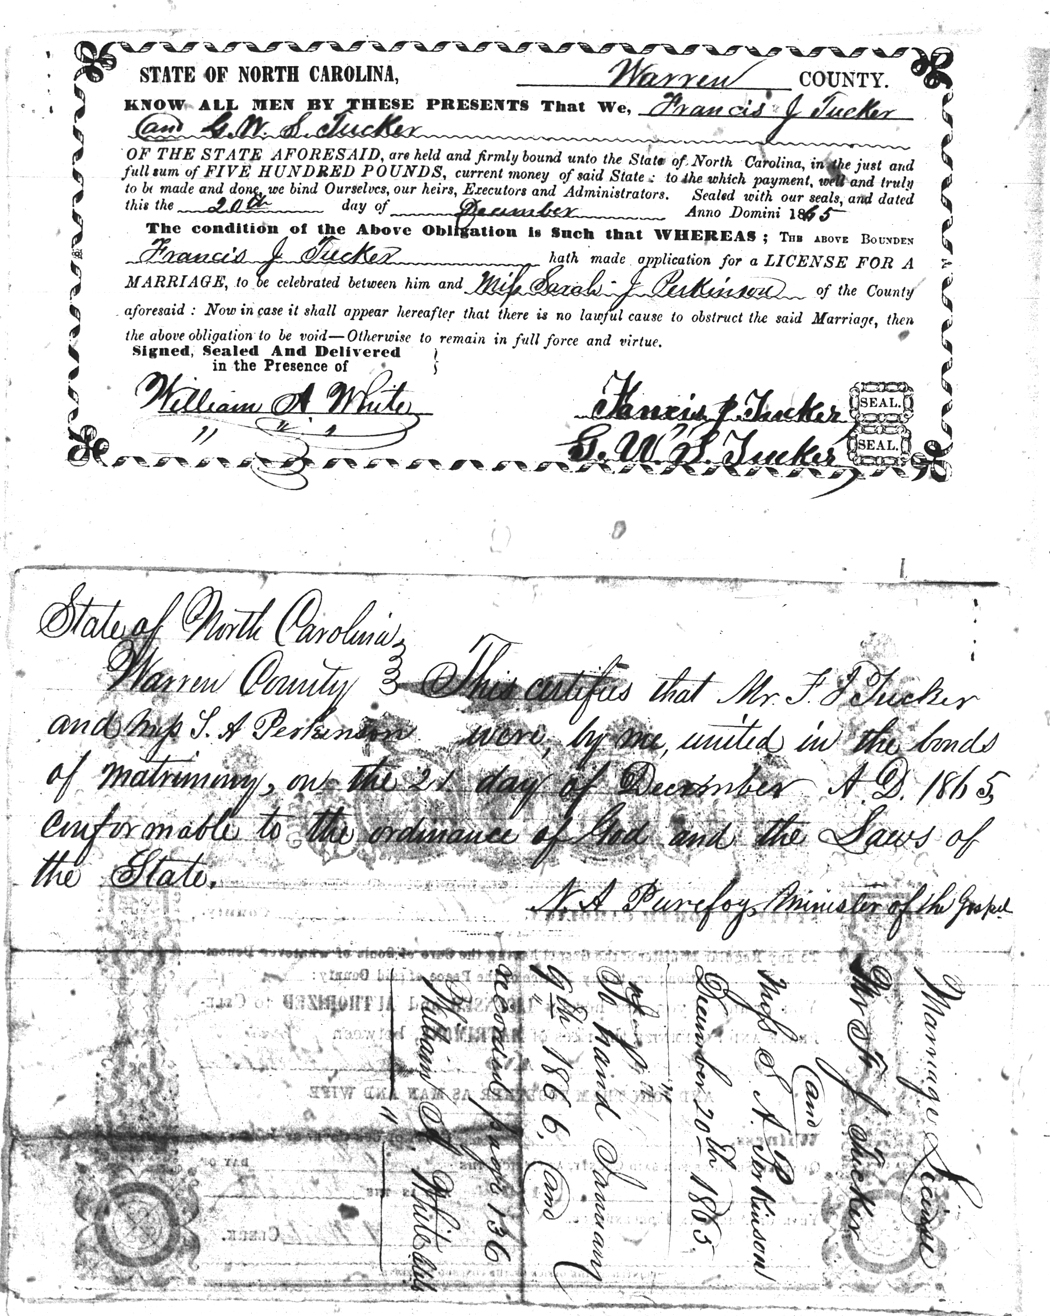 STATE OF NORTH CAROLINA, Warren COUNTY.
KNOW ALL MEN BY THESE PRESENTS That We, Francis J Tucker
and G. W. S. Tucker
OF THE STATE AFORESAID, are held and firmly bound unto the State of North Carolina, in the just and
full sum of FIVE HUNDRED POUNDS, current money of said State; to the which payment, well and truly
to be made and done, we bind Ourselves, our heirs, Executors and Administrators. Sealed with our seals, and dated
this the 20th day of December Anno Domini 1865
The condition of the Above Obligation is Such that WHEREAS; THE ABOVE BOUNDEN
Francis J Tucker hath made application for a LICENSE FOR A
MARRIAGE, to be celebrated between him and Miss Sarah J Perkinson of the County
aforesaid: Now in case it shall appear hereafter that there is no lawful cause to obstruct the said Marriage, then
the above obligation to be void—Otherwise to remain in full force and virtue.
Signed, Sealed And Delivered
in the Presence of
William A White
Francis J. Tucker SEAL.
G. W. S. Tucker SEAL.
State of North Carolina
Warren County This certifies that Mr. F. J Tucker
and Miss S. A Perkinson were, by me, united in the bonds
of matrimony, on the 21 day of December A. D. 1865,
conformable to the ordinance of God and the Laws of
the State.
N. A Purefoy, Minister of the Gospel
Marriage License
Mr F. J Tucker
and
Miss S. A. Perkinson
December 20th 1865.
to hand January
9th 1866, and
recorded page 136
William A. White Clk